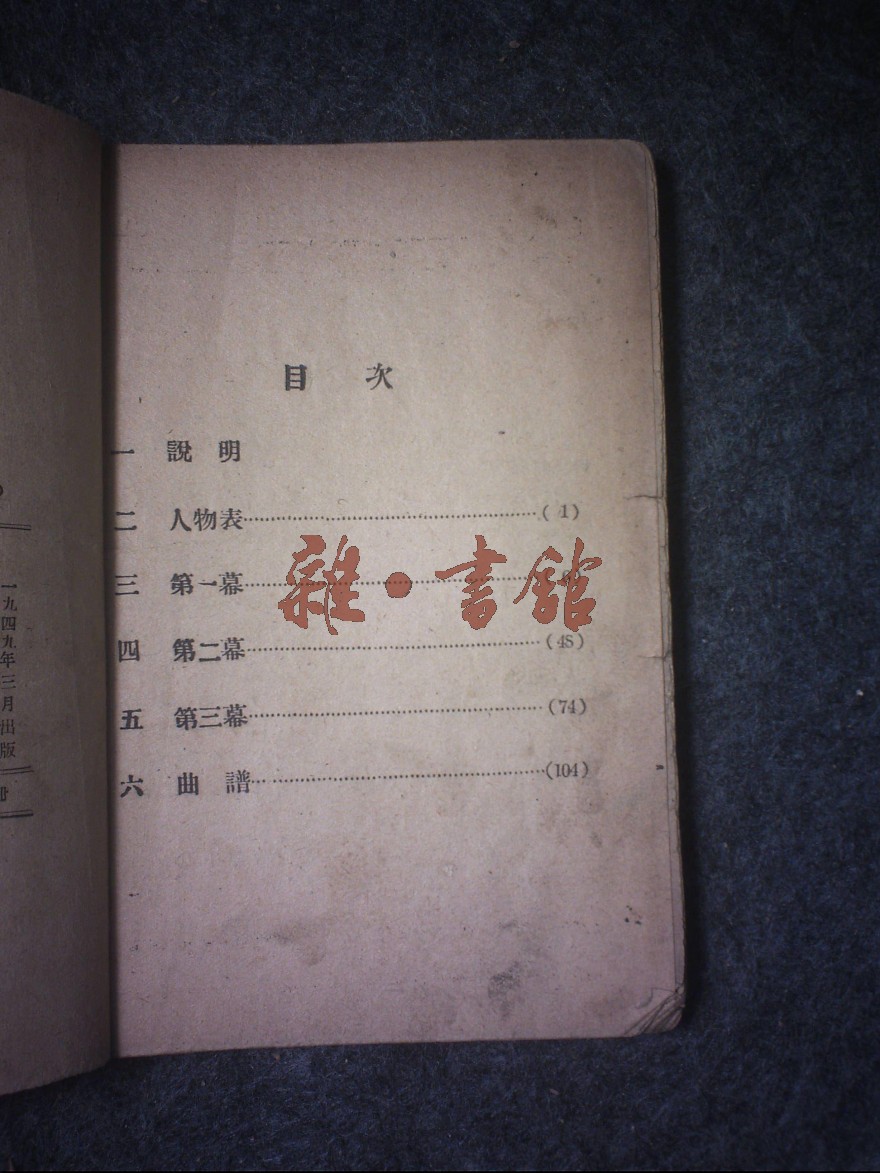 目 次
一 說 明
二 人物表………………………………( 1)
三 第一幕………………………………
四 第二幕………………………………(48)
五 第三幕………………………………(74)
六 曲 譜………………………………(104)
雜·書館
一九四九年三月出版